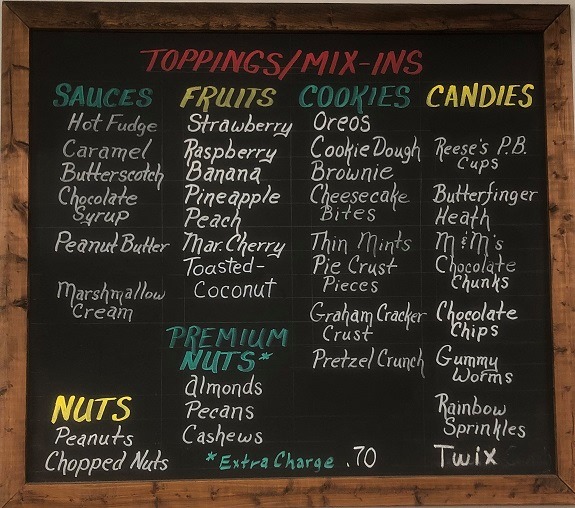 TOPPINGS/MIX-INS
SAUCES
Hot Fudge
Caramel
Butterscotch
Chocolate
Syrup
Peanut Butter
Marshmallow
Cream
NUTS
Peanuts
Chopped Nuts
FRUITS
Strawberry
Raspberry
Banana
Pineapple
Peach
Mar. Cherry
Toasted-
Coconut
PREMIUM
NUTS*
almonds
Pecans
Cashews
*Extra Charge .70
COOKIES
Oreos
Cookie Dough
Brownie
Cheesecake
Bites
Thin Mints
Pie Crust
Pieces
Graham Cracker
Crust
Pretzel Crunch
CANDIES
Reese's P.B.
Cups
Butterfinger
Heath
M&M's
Chocolate
Chunks
Chocolate
Chips
Gummy
Worms
Rainbow
Sprinkles
Twix